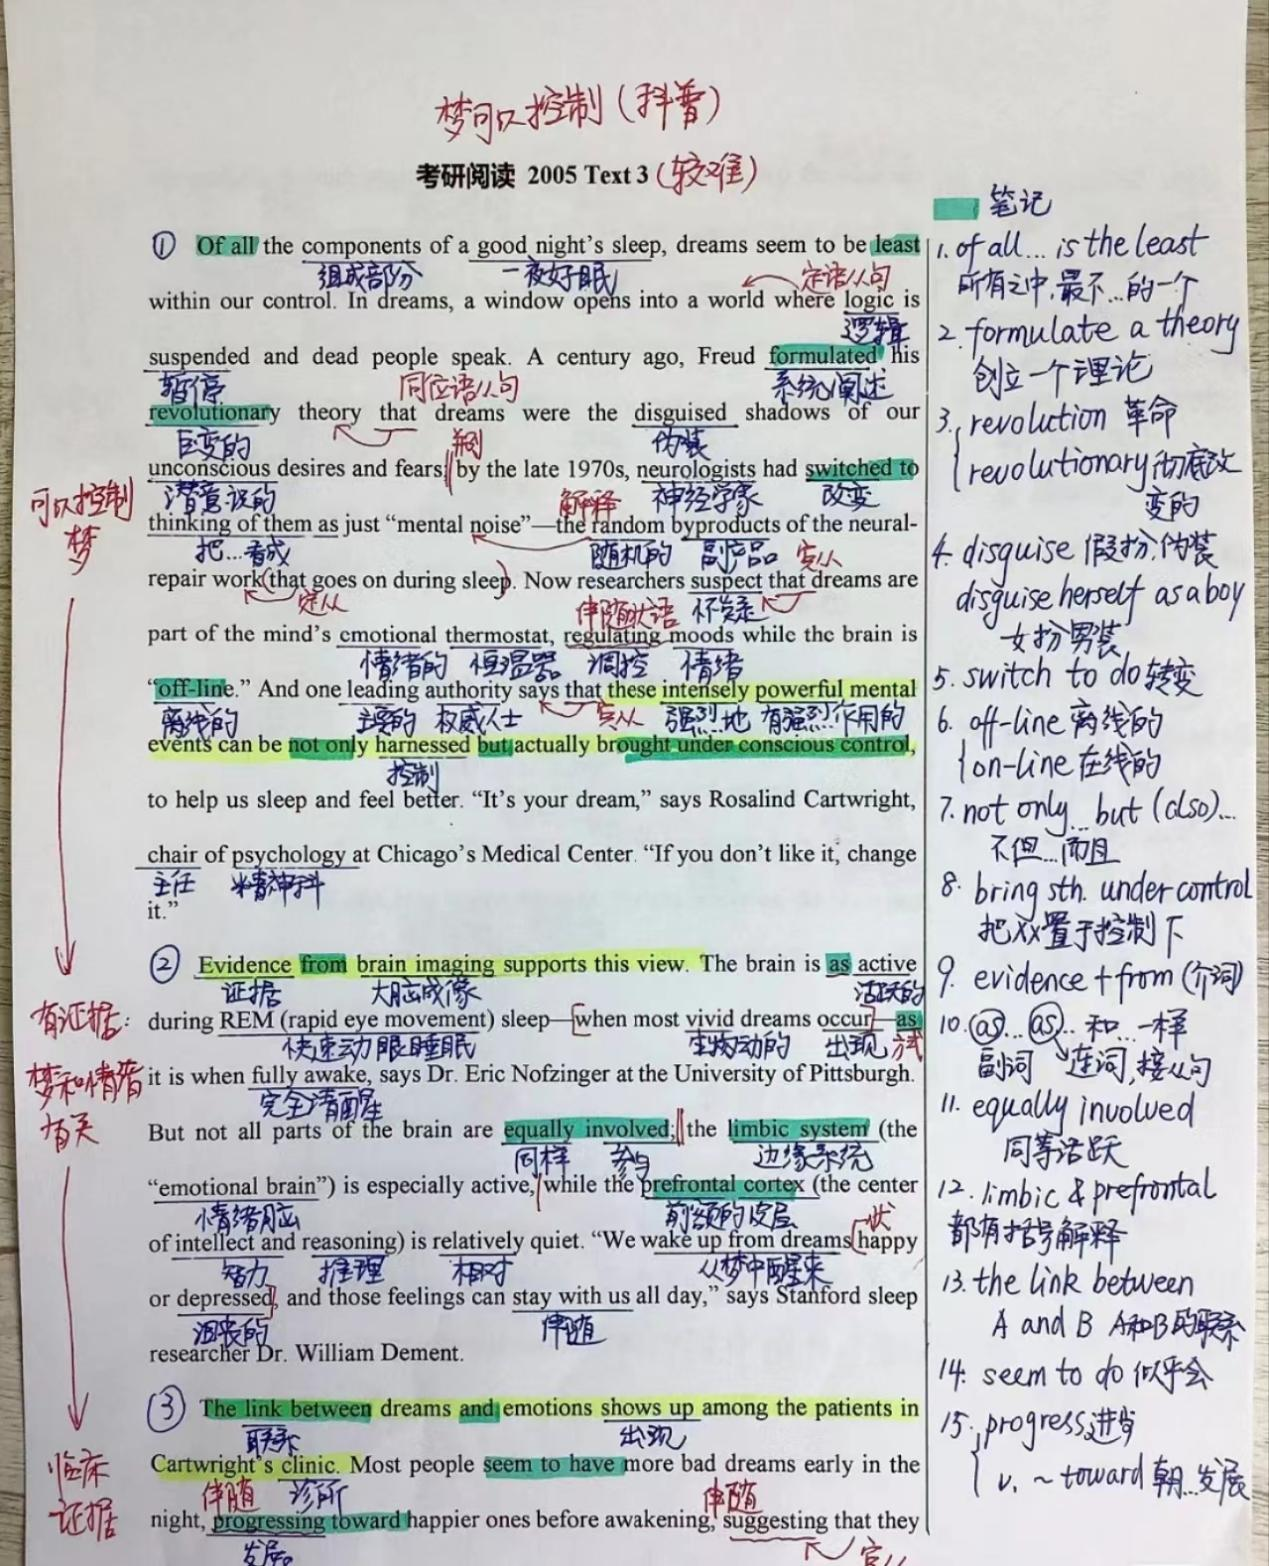 梦可以控制(科普)
考研阅读 2005 Text 3 (较难)
笔记
① Of all the components of a good night's sleep, dreams seem to be least
组成部分 一夜好眠 定语从句
within our control. In dreams, a window opens into a world where logic is
逻辑
suspended and dead people speak. A century ago, Freud formulated his
暂停 同位语从句 系统阐述
revolutionary theory that dreams were the disguised shadows of our
巨变的 并列 伪装
unconscious desires and fears; by the late 1970s, neurologists had switched to
潜意识的 解释 神经学家 改变
thinking of them as just “mental noise”—the random byproducts of the neural-
把...看成 随机的 副产品 宾从
repair work(that goes on during sleep). Now researchers suspect that dreams are
定从 伴随状语 怀疑
part of the mind's emotional thermostat, regulating moods while the brain is
情绪的 恒温器 调控 情绪
“off-line.” And one leading authority says that these intensely powerful mental
离线的 主要的 权威人士 宾从 强烈地 有强烈作用的
events can be not only harnessed but actually brought under conscious control,
控制
to help us sleep and feel better. “It's your dream,” says Rosalind Cartwright,
chair of psychology at Chicago's Medical Center. “If you don't like it, change
主任 精神科
it.”
② Evidence from brain imaging supports this view. The brain is as active
证据 大脑成像 活跃的
during REM (rapid eye movement) sleep—[when most vivid dreams occur]—as
快速动眼睡眠 生动的 出现 方式
it is when fully awake, says Dr. Eric Nofzinger at the University of Pittsburgh.
完全清醒
But not all parts of the brain are equally involved; the limbic system (the
同样 参与 边缘系统
“emotional brain”) is especially active, while the prefrontal cortex (the center
情绪脑 前额的皮层 状
of intellect and reasoning) is relatively quiet. “We wake up from dreams[happy
智力 推理 相对 从梦中醒来
or depressed], and those feelings can stay with us all day,” says Stanford sleep
沮丧的 伴随
researcher Dr. William Dement.
③ The link between dreams and emotions shows up among the patients in
联系 出现
Cartwright's clinic. Most people seem to have more bad dreams early in the
伴随 诊所 伴随
night, progressing toward happier ones before awakening, suggesting that they
发展 宾从
可以控制
梦
有证据:
梦和情绪
有关
临床
证据
1. of all... is the least
所有之中,最不...的一个
2. formulate a theory
创立一个理论
3. revolution 革命
revolutionary 彻底改
变的
4. disguise 假扮,伪装
disguise herself as a boy
女扮男装
5. switch to do 转变
6. off-line 离线的
on-line 在线的
7. not only... but (also)...
不但...而且
8. bring sth. under control
把XX置于控制下
9. evidence + from (介词)
10. as... as... 和...一样
副词 连词,接从句
11. equally involved
同等活跃
12. limbic & prefrontal
都有括号解释
13. the link between
A and B A和B的联系
14. seem to do 似乎会
15. progress 进步
v. ~ toward 朝...发展